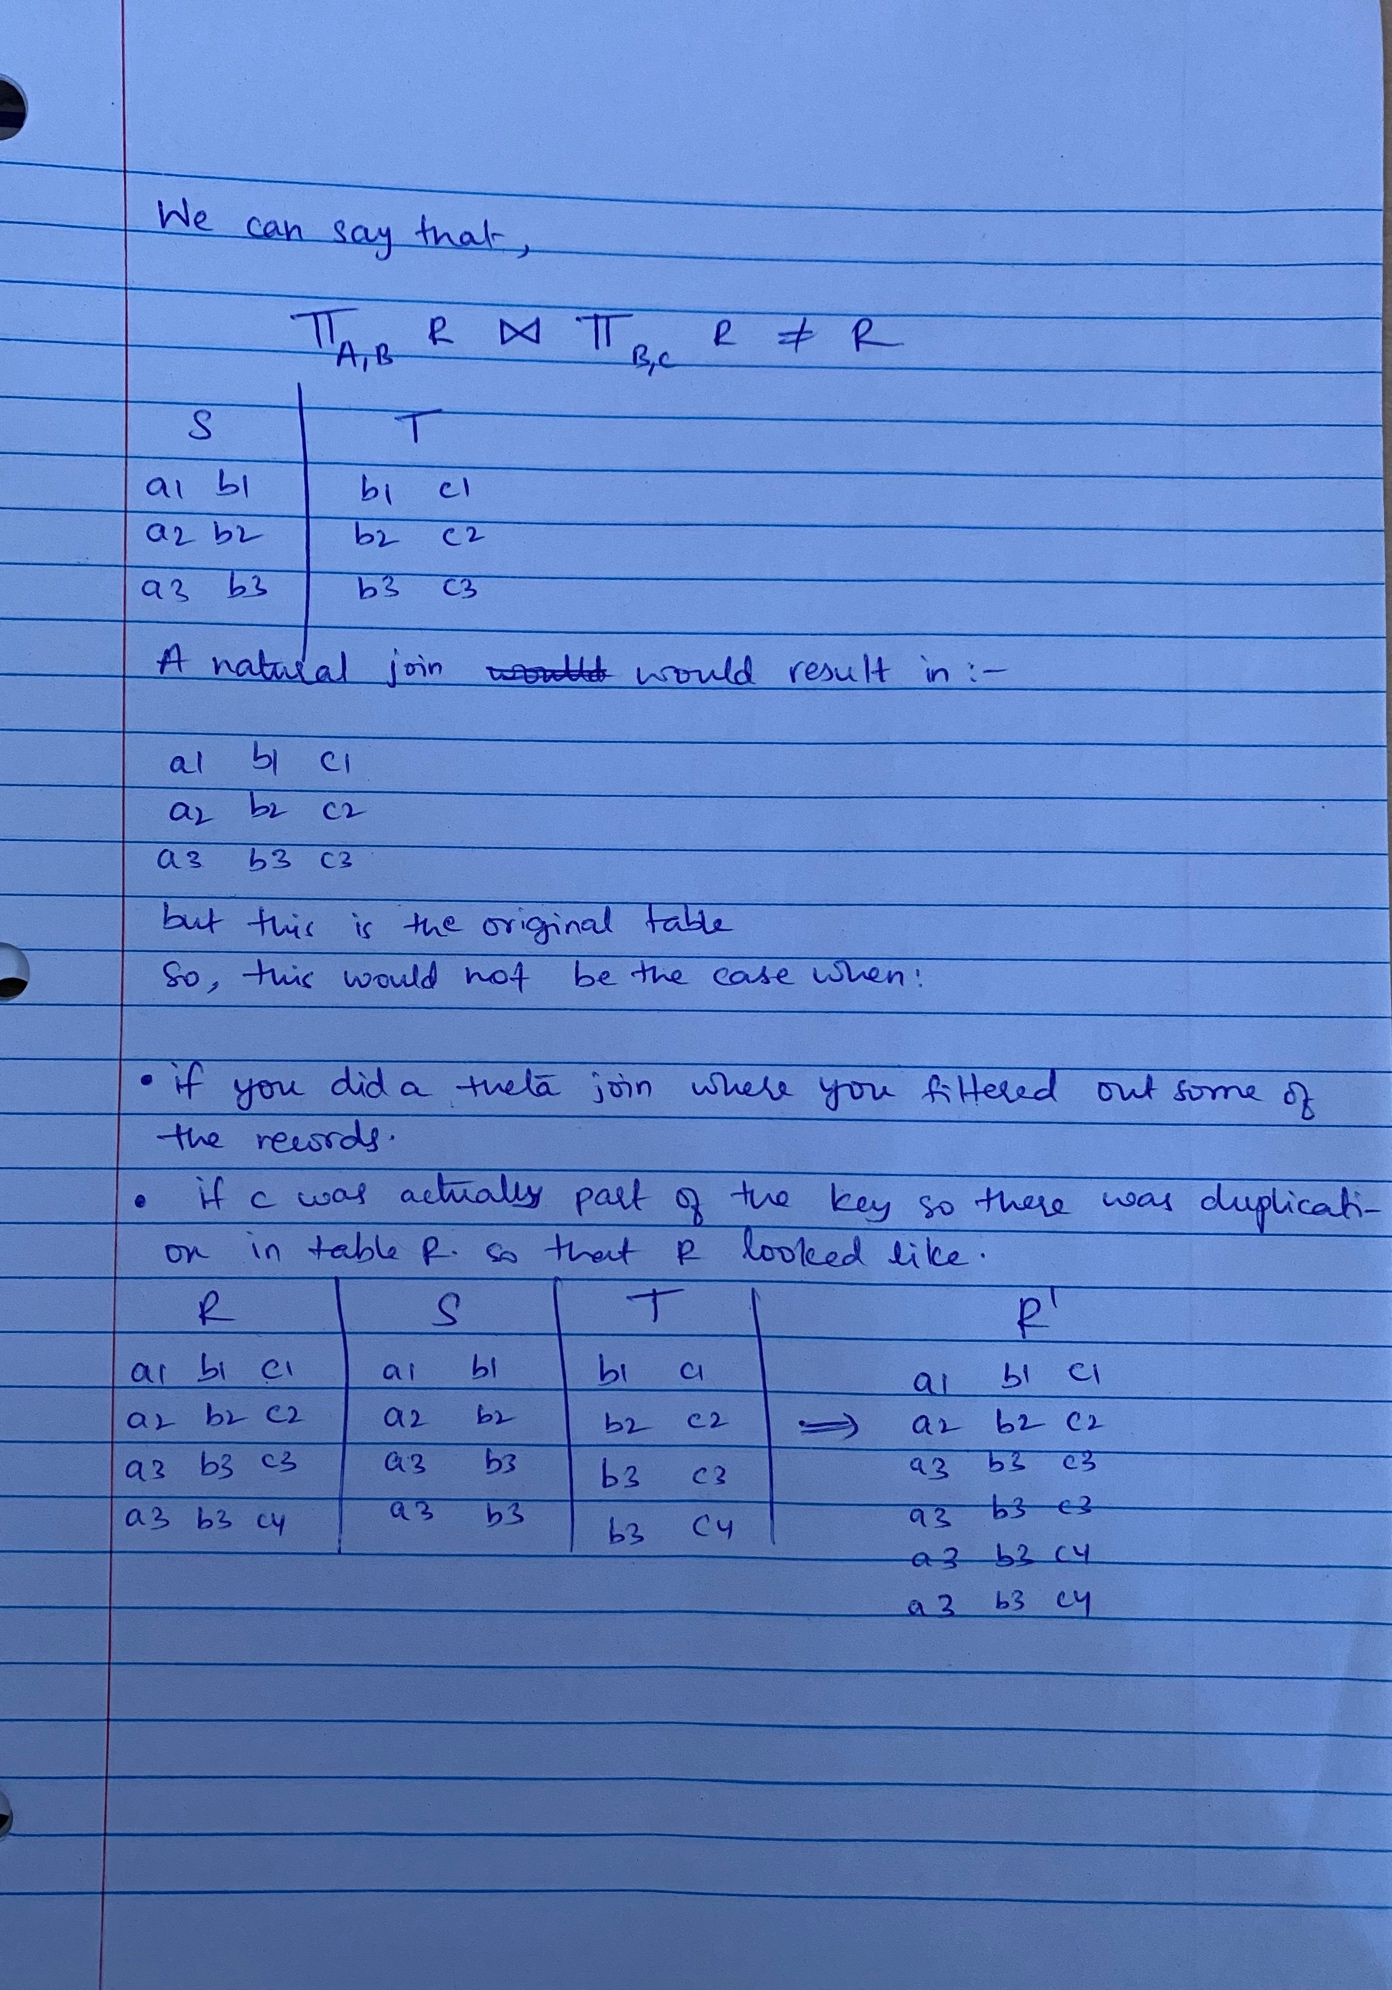 We can say that,
π A,B R ⋈ π B,C R ≠ R
S T
a1 b1 b1 c1
a2 b2 b2 c2
a3 b3 b3 c3
A natural join would result in :-
a1 b1 c1
a2 b2 c2
a3 b3 c3
but this is the original table
So, this would not be the case when:
• if you did a theta join where you filtered out some of
the records.
• if c was actually part of the key so there was duplicati-
on in table R. so that R looked like.
R S T R'
a1 b1 c1 a1 b1 b1 c1 a1 b1 c1
a2 b2 c2 a2 b2 b2 c2 ⇒ a2 b2 c2
a3 b3 c3 a3 b3 b3 c3 a3 b3 c3
a3 b3 c4 a3 b3 b3 c4 a3 b3 c3
a3 b3 c4
a3 b3 c4